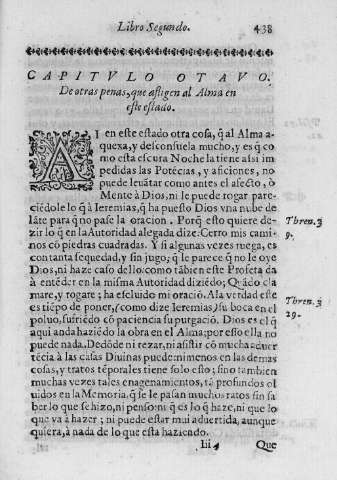 Libro Segundo. 438
CAPITVLO OTAVO.
De otras penas, que afligen al Alma en
este estado.
AI en este estado otra cosa, q̃ al Alma a-
quexa, y desconsuela mucho, y es q̃ co
mo esta escura Noche la tiene assi im
pedidas las Potẽcias, y aficiones, no
puede levãtar como antes el afecto, ò
Mente à Dios, ni le puede rogar pare-
ciẽdole lo q̃ à Ieremias, q̃ ha puesto Dios vna nube de
lãte para q̃ no pase la oracion. Porq̃ esto quiere de-
zir lo q̃ en la Autoridad alegada dize: Cerro mis cami-
nos cõ piedras cuadradas. Y si algunas vezes ruega, es
con tanta sequedad, y sin jugo; q̃ le parece q̃ no le oye
Dios, ni haze caso dello: como tãbien este Profeta da
à entẽder en la misma Autoridad diziẽdo; Quãdo cla
mare, y rogare; ha escluido mi oraciõ. A la verdad este
es tiẽpo de poner, (como dize Ieremias,) su boca en el
polvo, sufriẽdo cõ paciencia su purgaciõ. Dios es el q̃
aqui anda haziẽdo la obra en el Alma; por esso ella no
puede nada. Dedõde ni rezar, ni asistir cõ mucha adver
tẽcia à las casas Divinas puede: ni menos en las demas
cosas, y tratos tẽporales tiene solo esto; sino tambien
muchas vezes tales enagenamientos, tã profundos ol
uidos en la Memoria, q̃ se le pasan muchos ratos sin sa
ber lo que se hizo, ni penso: ni q̃ es lo q̃ haze, ni que lo
que va à hazer; ni puede estar mui advertida, aunque
quiera, à nada de lo que esta haziendo.
Thren. 3
9.
Thren. 3
29.
Iii 4 Que